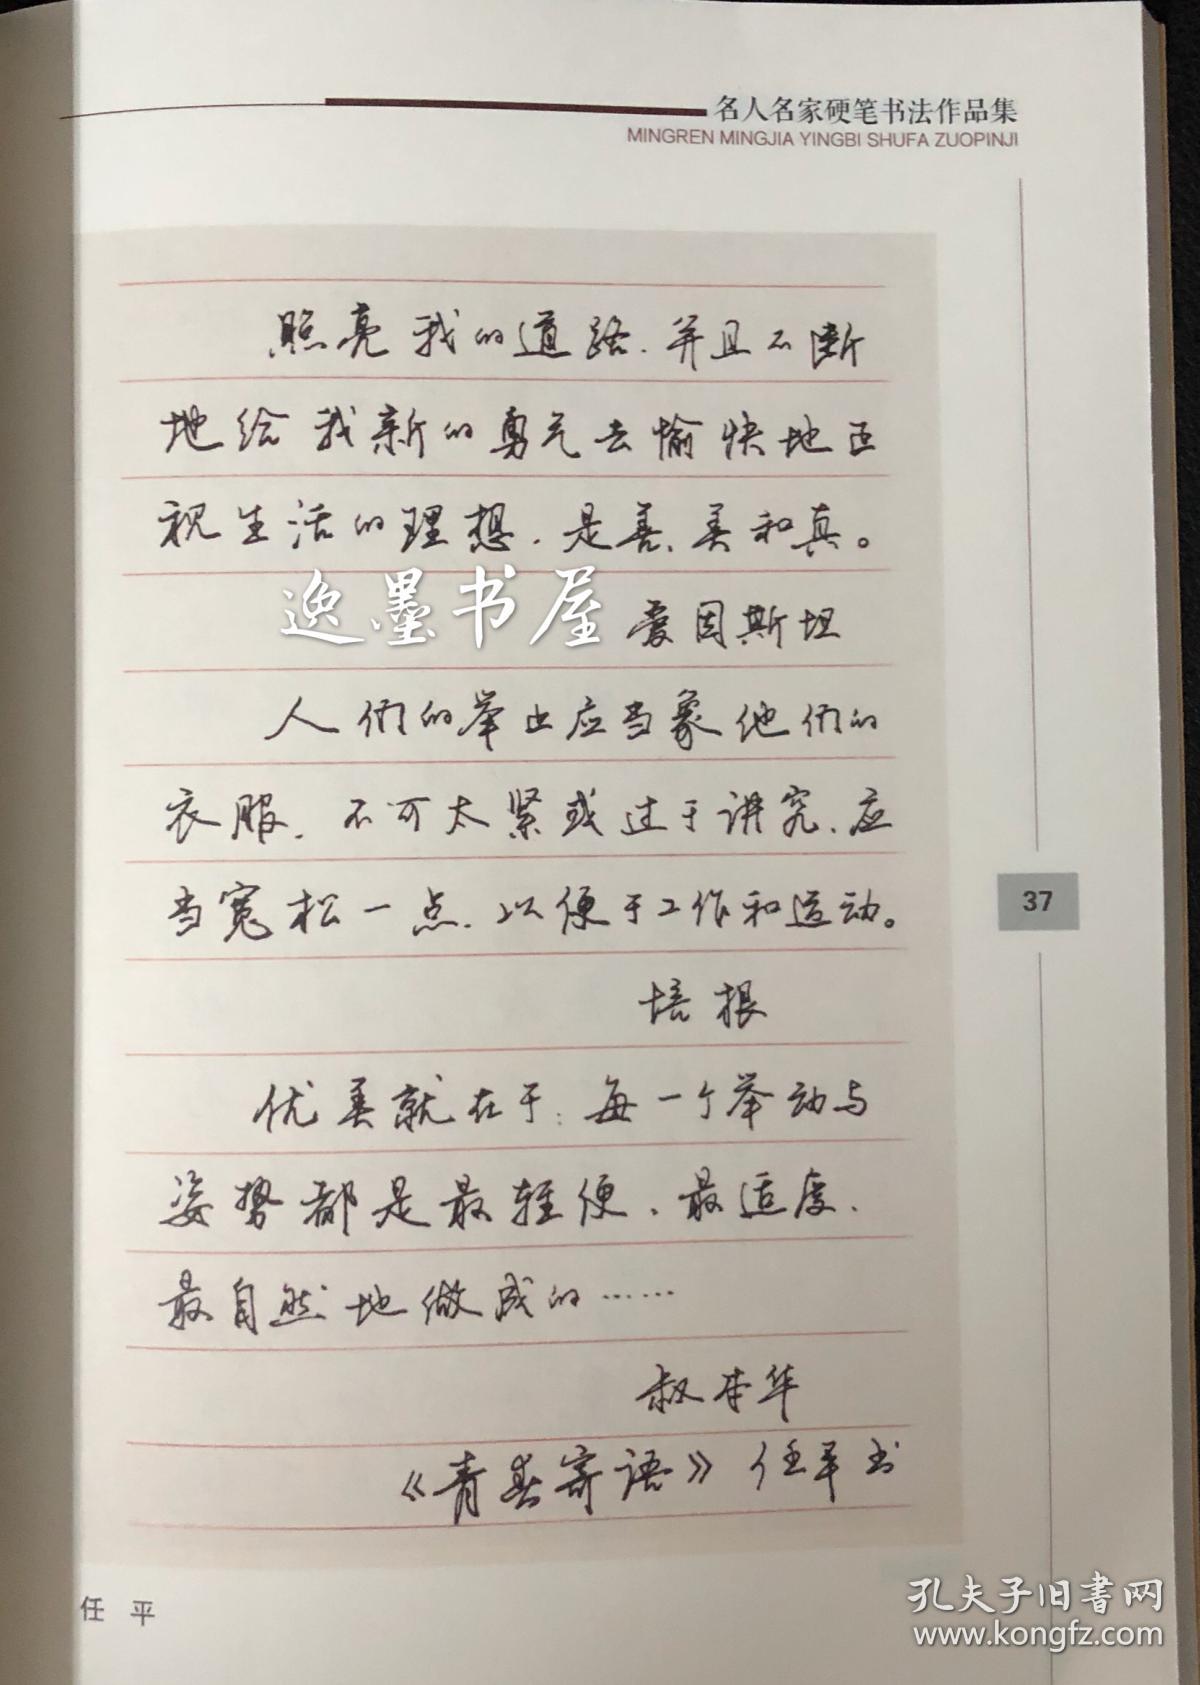 名人名家硬笔书法作品集
MINGREN MINGJIA YINGBI SHUFA ZUOPINJI
照亮我的道路、并且不断
地给我新的勇气去愉快地正
视生活的理想、是善、美和真。
逸墨书屋
爱因斯坦
人们的举止应当象他们的
衣服、不可太紧或过于讲究、应
当宽松一点、以便于工作和运动。
37
培根
优美就在于:每一个举动与
姿势都是最轻便、最适度、
最自然地做成的……
叔本华
《青春寄语》任平书
任 平
孔夫子旧书网
www.kongfz.com